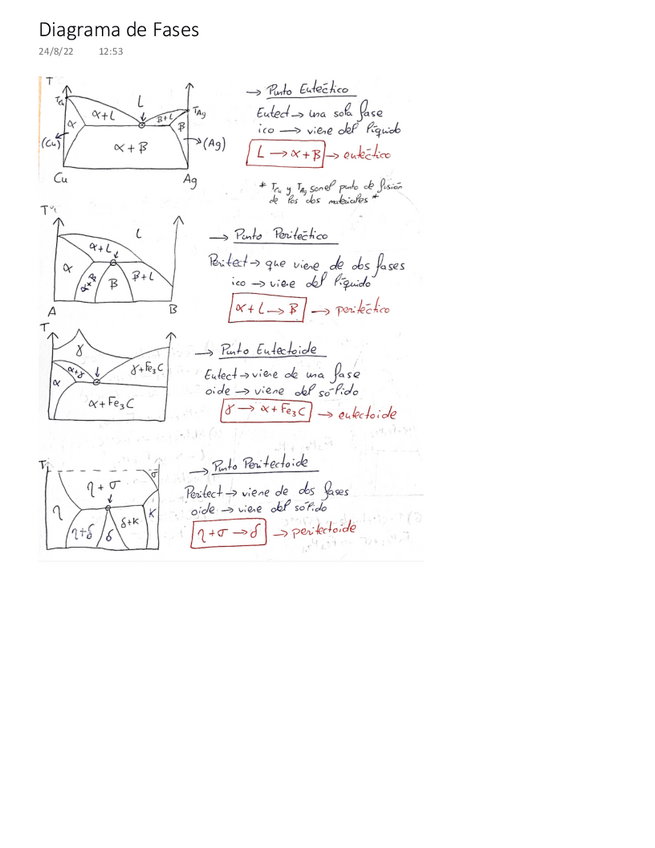 Diagrama de Fases
24/8/22 12:53
T
TCu
α
α+L
L
B+L
TAg
B
(Cu)
α+B
(Ag)
Cu
Ag
→ Punto Eutéctico
Eutect → una sola fase
ico → viene del líquido
L → α+B → eutéctico
* TCu y TAg son el punto de fusión
de los dos materiales *
L
α+L
α
α+B
B
B+L
A
B
→ Punto Peritéctico
Peritect → que viene de dos fases
ico → viene del líquido
α+L → B → peritéctico
T
γ
α+γ
γ+Fe3C
α
α+Fe3C
→ Punto Eutectoide
Eutect → viene de una fase
oide → viene del sólido
γ → α+Fe3C → eutectoide
T
σ
η+σ
η
η+δ
δ
δ+K
K
→ Punto Peritectoide
Peritect → viene de dos fases
oide → viene del sólido
η+σ → δ → peritectoide